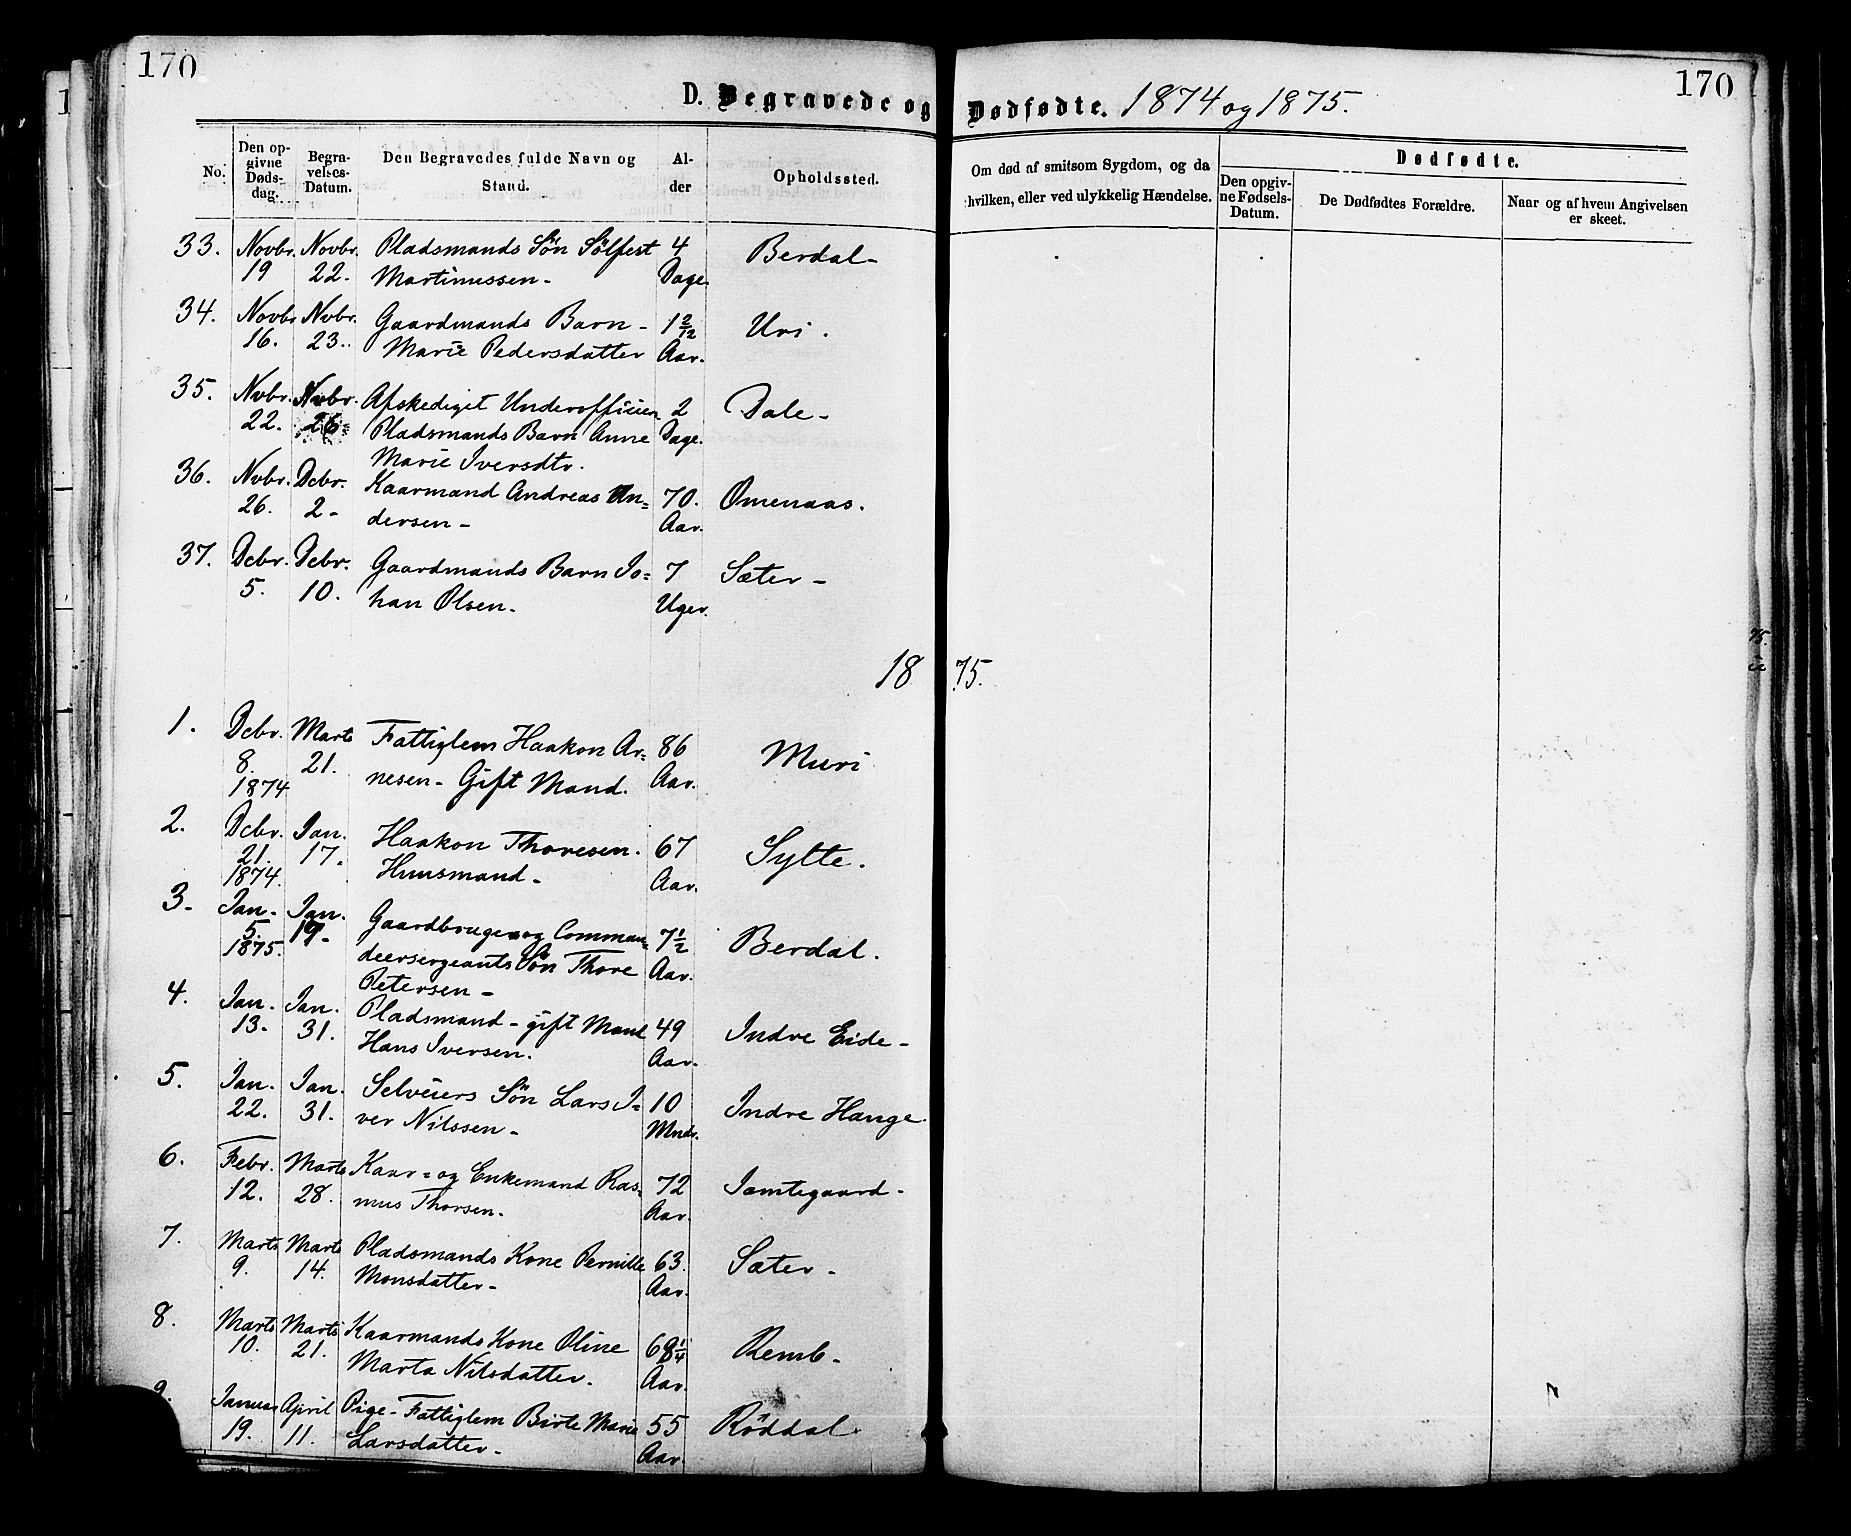 170
170
D. Begravede og Dødfødte. 1874 og 1875.
No.
Den op-
givne
Døds-
dag.
Begra-
velses-
Datum.
Den Begravedes fulde Navn og
Stand.
Al-
der
Opholdssted.
Om død af smitsom Sygdom, og da
hvilken, eller ved ulykkelig Hændelse.
Dødfødte.
Den opgiv-
ne Fødsels-
Datum.
De Dødfødtes Forældre.
Naar og af hvem Angivelsen
er skeet.
33. Novbr. Novbr. Pladsmands Sön Sölfest 4 Berdal-
19 22. Martinussen- Dage.
34. Novbr Nvbr. Gaardmands Barn- 1 2/12 Uri.
16. 23.. Marie Pedersdatter Aar.
35. Nvbr. Nvbr. Afskediget Underofficier 2 Dale-
22. 26 Pladsmands Barn Anne Dage.
Marie Iversdtr.
36. Nvbr. Dcbr. Kaarmand Andreas An= 70. Omenaas.
26. 2- dersen- Aar.
37. Dcbr. Dcbr. Gaardmands Barn Jo= 7 Sæter-
5. 10. han Olsen. Uger.
1875.
1. Dcbr. Marts Fattiglem Haakon Ar= 86 Muri
8. 21. nesen- Gift Mand. Aar.
1874
2. Dcbr. Jan. Haakon Thoresen. 67 Sylte.
21. 17. Huusmand- Aar.
1874.
3- Jan. Jan. Gaardbruger og Comman= 7 1/2 Berdal.
5. 17- deersergeants Sön Thore Aar.
1875. Petersen-
4. Jan. Jan. Pladsmand- gift Mand 49 Indre Eide-
13. 31. Hans Iversen. Aar.
5. Jan. Jan. Selveiers Sön Lars I= 10 Indre Hauge
22. 31. ver Nilssen- Mnds.
6. Febr. Marts Kaar= og Enkemand Ras= 72 Jamtegaard-
12. 28. mus Thorsen. Aar.
7. Marts Marts Pladsmands Kone Pernille 63. Sæter-
9. 14. Monsdatter- Aar.
8. Marts Marts Kaarmands Kone Oline 68 1/4 Remb-
10. 21. Marta Nilsdatter. Aar.
9. Januar April Pige- Fattiglem Birte Marie 55 Röddal.
19. 11. Larsdatter- Aar.